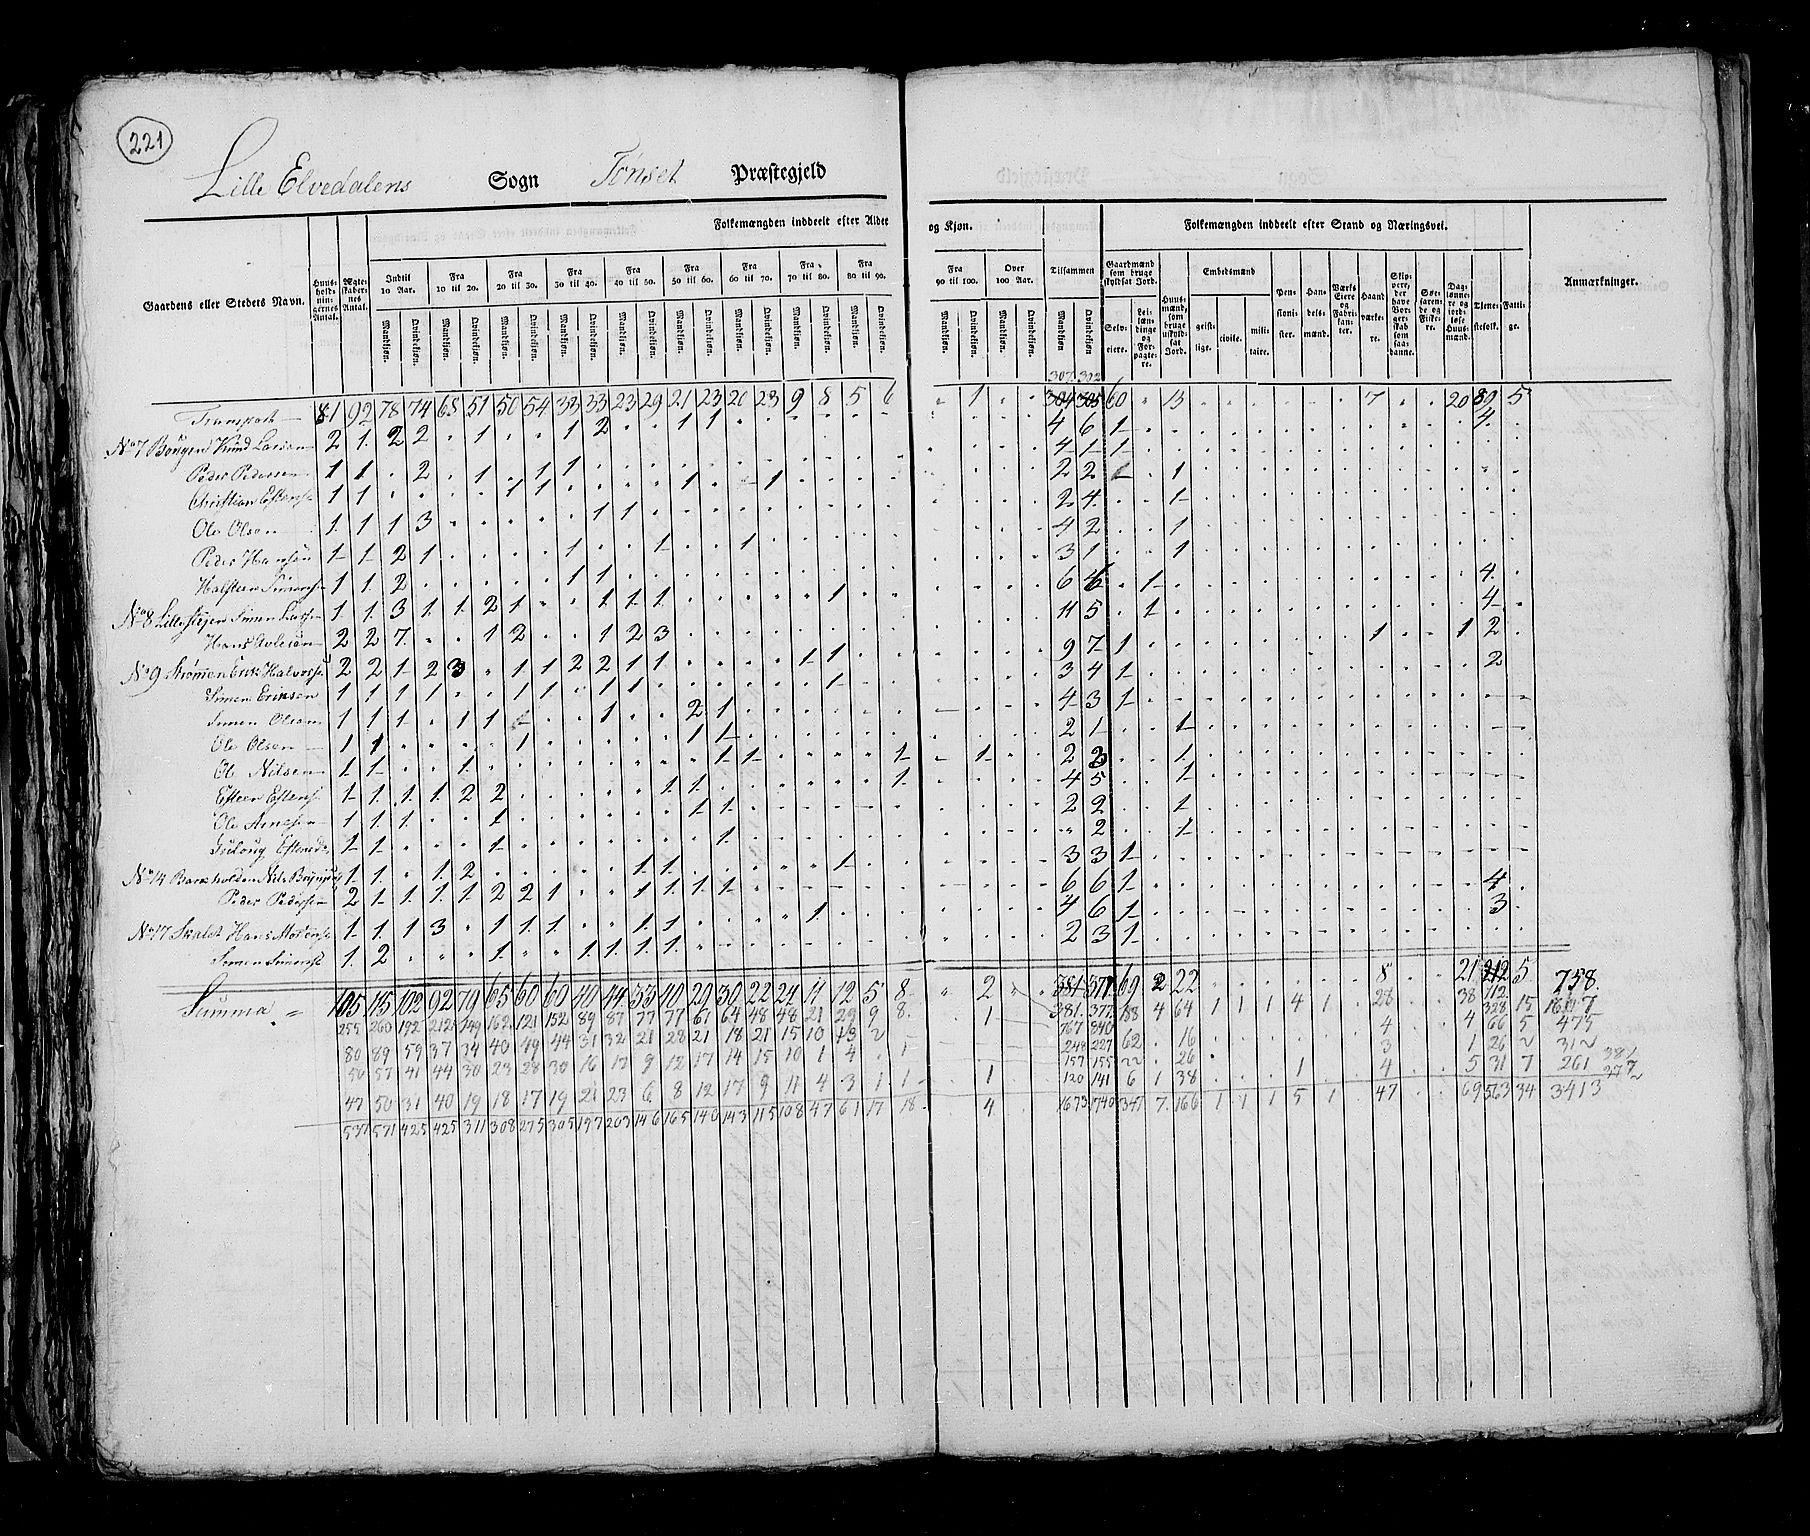 221
Lille Elvedalens Sogn Tønset Præstegjeld
Folkemængden inddeelt efter Alder og Kjøn. Folkemængden inddeelt efter Stand og Næringsvei.
Gaardens eller Stedets Navn. Huusholdningernes Antal. Ægteskabernes Antal. Indtil 10 Aar. Fra 10 til 20. Fra 20 til 30. Fra 30 til 40. Fra 40 til 50. Fra 50 til 60. Fra 60 til 70. Fra 70 til 80. Fra 80 til 90. Fra 90 til 100. Over 100 Aar. Tilsammen Gaardmænd som bruge skyldsat Jord. Huusmænd, som bruge uskyldsat Jord. Embedsmænd Pensionister. Handelsmænd. Værks Eiere og Fabrikanter. Haandværkere. Skippere, der have Borgerskab som saadanne. Søefarende og Fiskere. Daglønnere og jordløse Huusmænd. Tjenestefolk. Fattige. Anmærkninger.
Mandkiøn. Qvindekiøn. Selveiere. Leilændinge og Forpagtere. geistlige. civile. militaire.
307 302
Transport 81 92 78 74 68 51 50 54 33 33 23 29 21 23 20 23 9 8 5 6 1 304 305 60 13 7 20 89 5
No 7 Knud Larsen 2 1 2 2 1 1 2 1 1 4 6 1 4
Peder Pedersen 1 1 2 1 1 1 4 1 1
Christian 1 1 1 1 1 1 2 2 1
Ole Olsen 1 1 1 3 1 1 2 4 1
Peder Hansen 1 1 2 1 1 1 1 4 2 1
Halsteen Simens 1 1 2 1 1 3 1 1
No 8 Simen 1 1 3 1 1 2 1 1 1 1 1 6 4 1 4
Hans 2 2 7 1 2 1 2 3 11 5 1 4
No 9 Strømmen Erik Halvors 2 2 1 2 3 1 1 2 2 1 1 1 1 9 7 1 1 1 2
Simen Eriksen 1 1 1 1 1 1 1 1 1 3 4 1 2
Simen Olsen 1 1 1 1 1 1 2 1 4 3 1
Ole Olsen 1 1 1 1 1 2 1 1
Ol Nilsen 1 1 1 1 1 1 1 2 3 1
Esteen Estens 1 1 1 1 2 2 1 1 1 4 5 1
Ole Arnesen 1 1 1 1 1 1 2 2 1
1 1 1 1 2 1
No 14 Nils 1 1 1 2 1 1 1 3 3 1
Peder Pedersen 2 1 1 1 1 2 2 1 1 1 1 1 6 6 1 4
No 17 Hans 1 1 1 3 1 1 1 1 1 1 4 6 1 3
Simen Simens 1 2 1 1 1 1 1 2 3 1
Summa 105 115 102 92 79 65 60 60 40 44 33 40 29 30 22 24 11 12 5 8 2 381 377 69 2 22 8 21 112 5 758
255 260 192 212 149 162 121 152 89 87 77 77 61 64 48 48 21 29 9 8 1 381 377 88 4 64 1 1 1 4 1 28 38 328 15 1607
80 89 59 37 34 40 49 44 31 32 21 28 21 18 21 15 10 13 2 767 840 62 16 4 4 66 5 475
50 57 41 44 30 23 28 30 16 17 9 12 17 14 15 10 1 4 1 248 227 22 26 3 1 26 2 312
47 50 31 40 19 18 17 19 21 23 6 8 12 17 9 11 4 3 1 1 1 157 155 6 1 38 1 4 5 31 7 261
120 141
537 571 425 425 311 308 275 305 197 203 146 165 140 143 115 108 47 61 17 18 4 1673 1740 347 7 166 1 1 1 5 1 47 69 563 34 3413
381
377